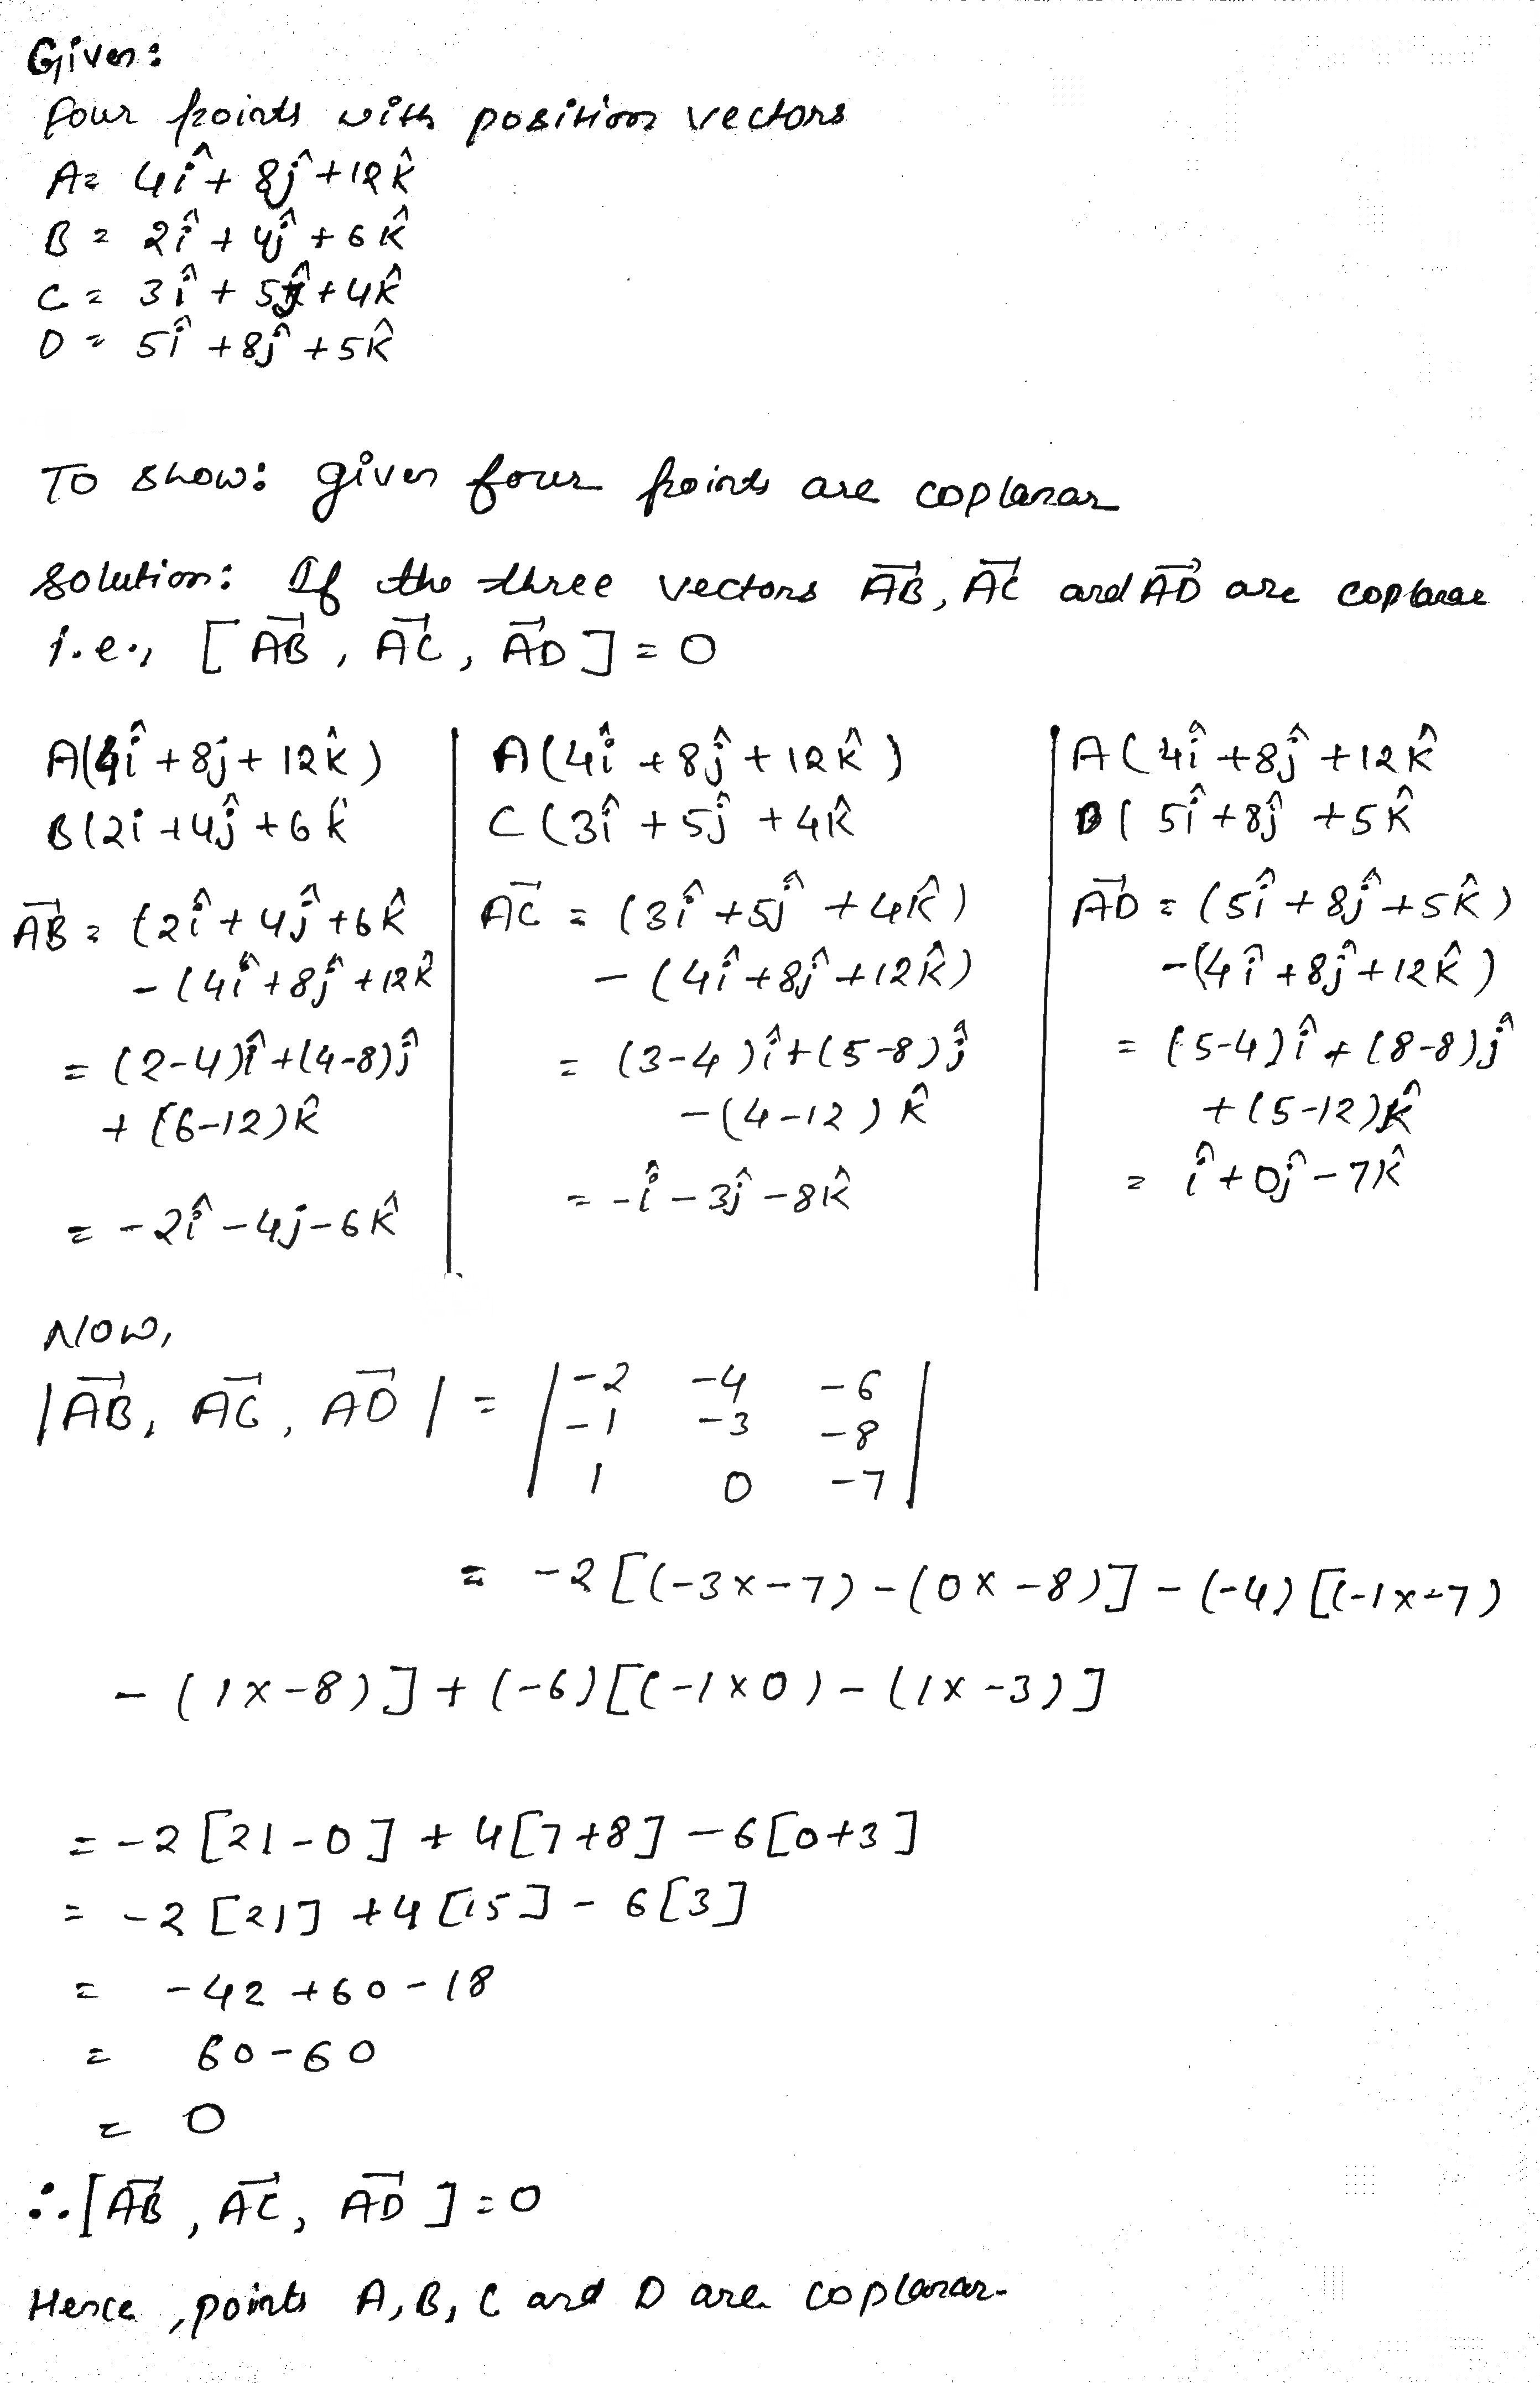 Given:
four points with position vectors
A = 4î + 8ĵ + 12k̂
B = 2î + 4ĵ + 6k̂
C = 3î + 5ĵ + 4k̂
D = 5î + 8ĵ + 5k̂
To show: given four points are coplanar
Solution: If the three vectors A⃗B, A⃗C and A⃗D are coplanar
i.e., [A⃗B, A⃗C, A⃗D] = 0
A(4î + 8j + 12k̂)
B(2i + 4ĵ + 6k̂
A⃗B = (2î + 4ĵ + 6k̂
- (4î + 8ĵ + 12k̂
= (2-4)î + (4-8)ĵ
+ (6-12)k̂
= -2î - 4j - 6k̂
A(4î + 8ĵ + 12k̂)
C(3î + 5ĵ + 4k̂
A⃗C = (3î + 5ĵ + 4k̂)
- (4î + 8ĵ + 12k̂)
= (3-4)î + (5-8)ĵ
- (4-12)k̂
= -î - 3ĵ - 8k̂
A(4î + 8ĵ + 12k̂
D(5î + 8ĵ + 5k̂
A⃗D = (5î + 8ĵ + 5k̂)
- (4î + 8ĵ + 12k̂)
= (5-4)î + (8-8)ĵ
+ (5-12)k̂
= î + 0ĵ - 7k̂
Now,
|A⃗B, A⃗C, A⃗D| = | -2 -4 -6 |
| -1 -3 -8 |
| 1 0 -7 |
= -2[(-3x-7) - (0x-8)] - (-4)[(-1x-7)
- (1x-8)] + (-6)[(-1x0) - (1x-3)]
= -2[21-0] + 4[7+8] - 6[0+3]
= -2[21] + 4[15] - 6[3]
= -42 + 60 - 18
= 60 - 60
= 0
∴ [A⃗B, A⃗C, A⃗D] = 0
Hence, points A, B, C and D are coplanar.